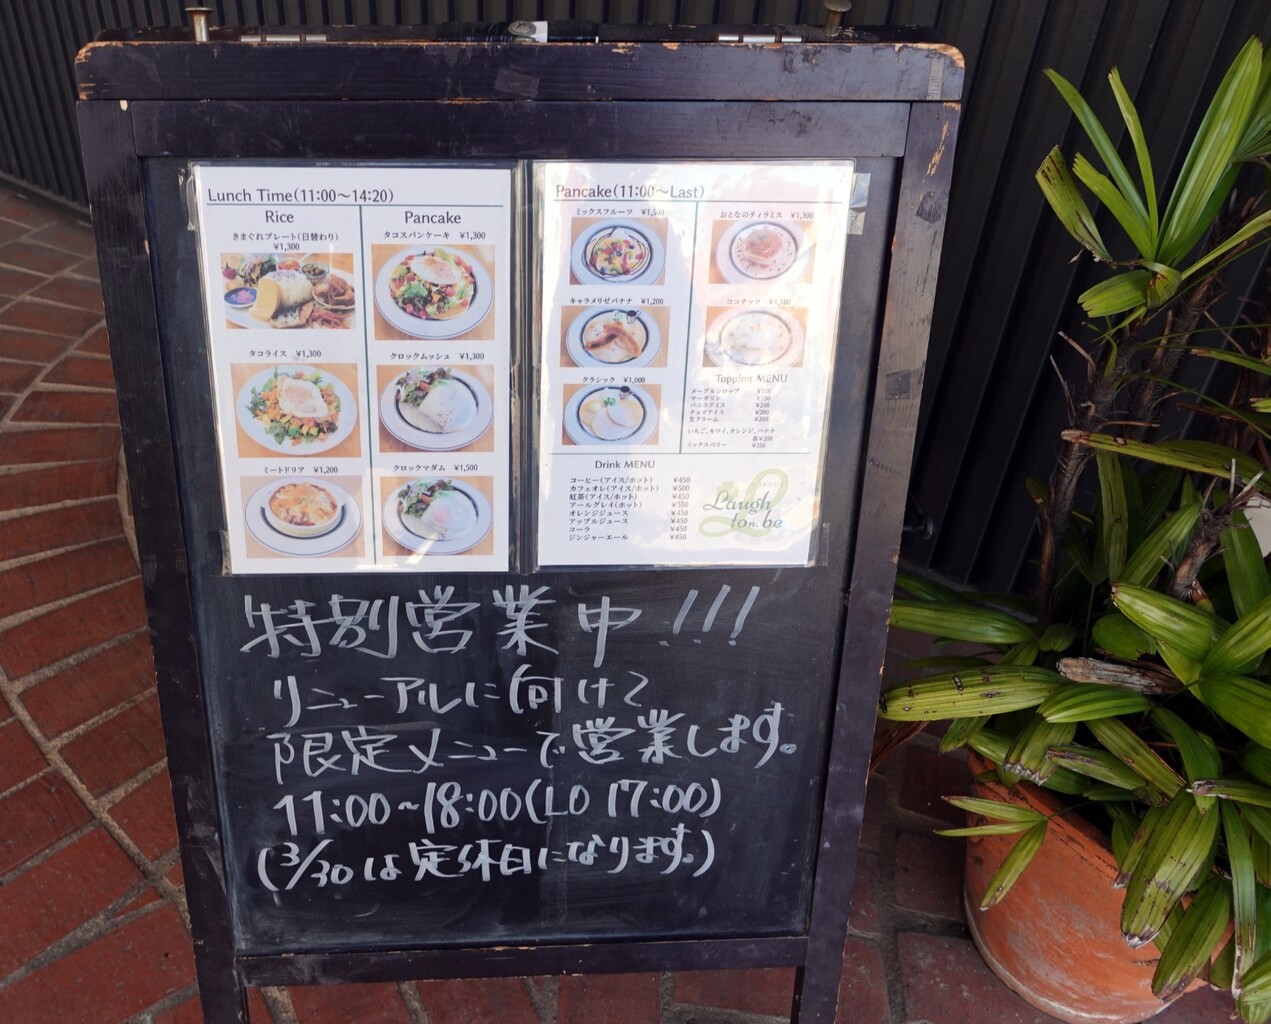 Lunch Time(11:00～14:20)
Rice
きまぐれプレート(日替わり)
¥1,300
タコライス ¥1,300
ミートドリア ¥1,200
Pancake
タコスパンケーキ ¥1,300
クロックムッシュ ¥1,300
クロックマダム ¥1,500
Pancake(11:00～Last)
ミックスフルーツ ¥1,500
キャラメリゼバナナ ¥1,200
クラシック ¥1,000
おとなのティラミス ¥1,300
ココナッツ ¥1,100
Topping MENU
メープルシロップ ¥150
マーガリン ¥150
バニラアイス ¥200
チョコアイス ¥200
生クリーム ¥200
いちご、キウイ、オレンジ、バナナ
各¥200
ミックスベリー ¥350
Drink MENU
コーヒー(アイス/ホット) ¥450
カフェオレ(アイス/ホット) ¥500
紅茶(アイス/ホット) ¥450
アールグレイ(ホット) ¥500
オレンジジュース ¥450
アップルジュース ¥450
コーラ ¥450
ジンジャーエール ¥450
Laugh
to n. be
特別営業中!!!
リニューアルに向けて
限定メニューで営業します。
11:00～18:00(LO 17:00)
(3/30は定休日になります。)